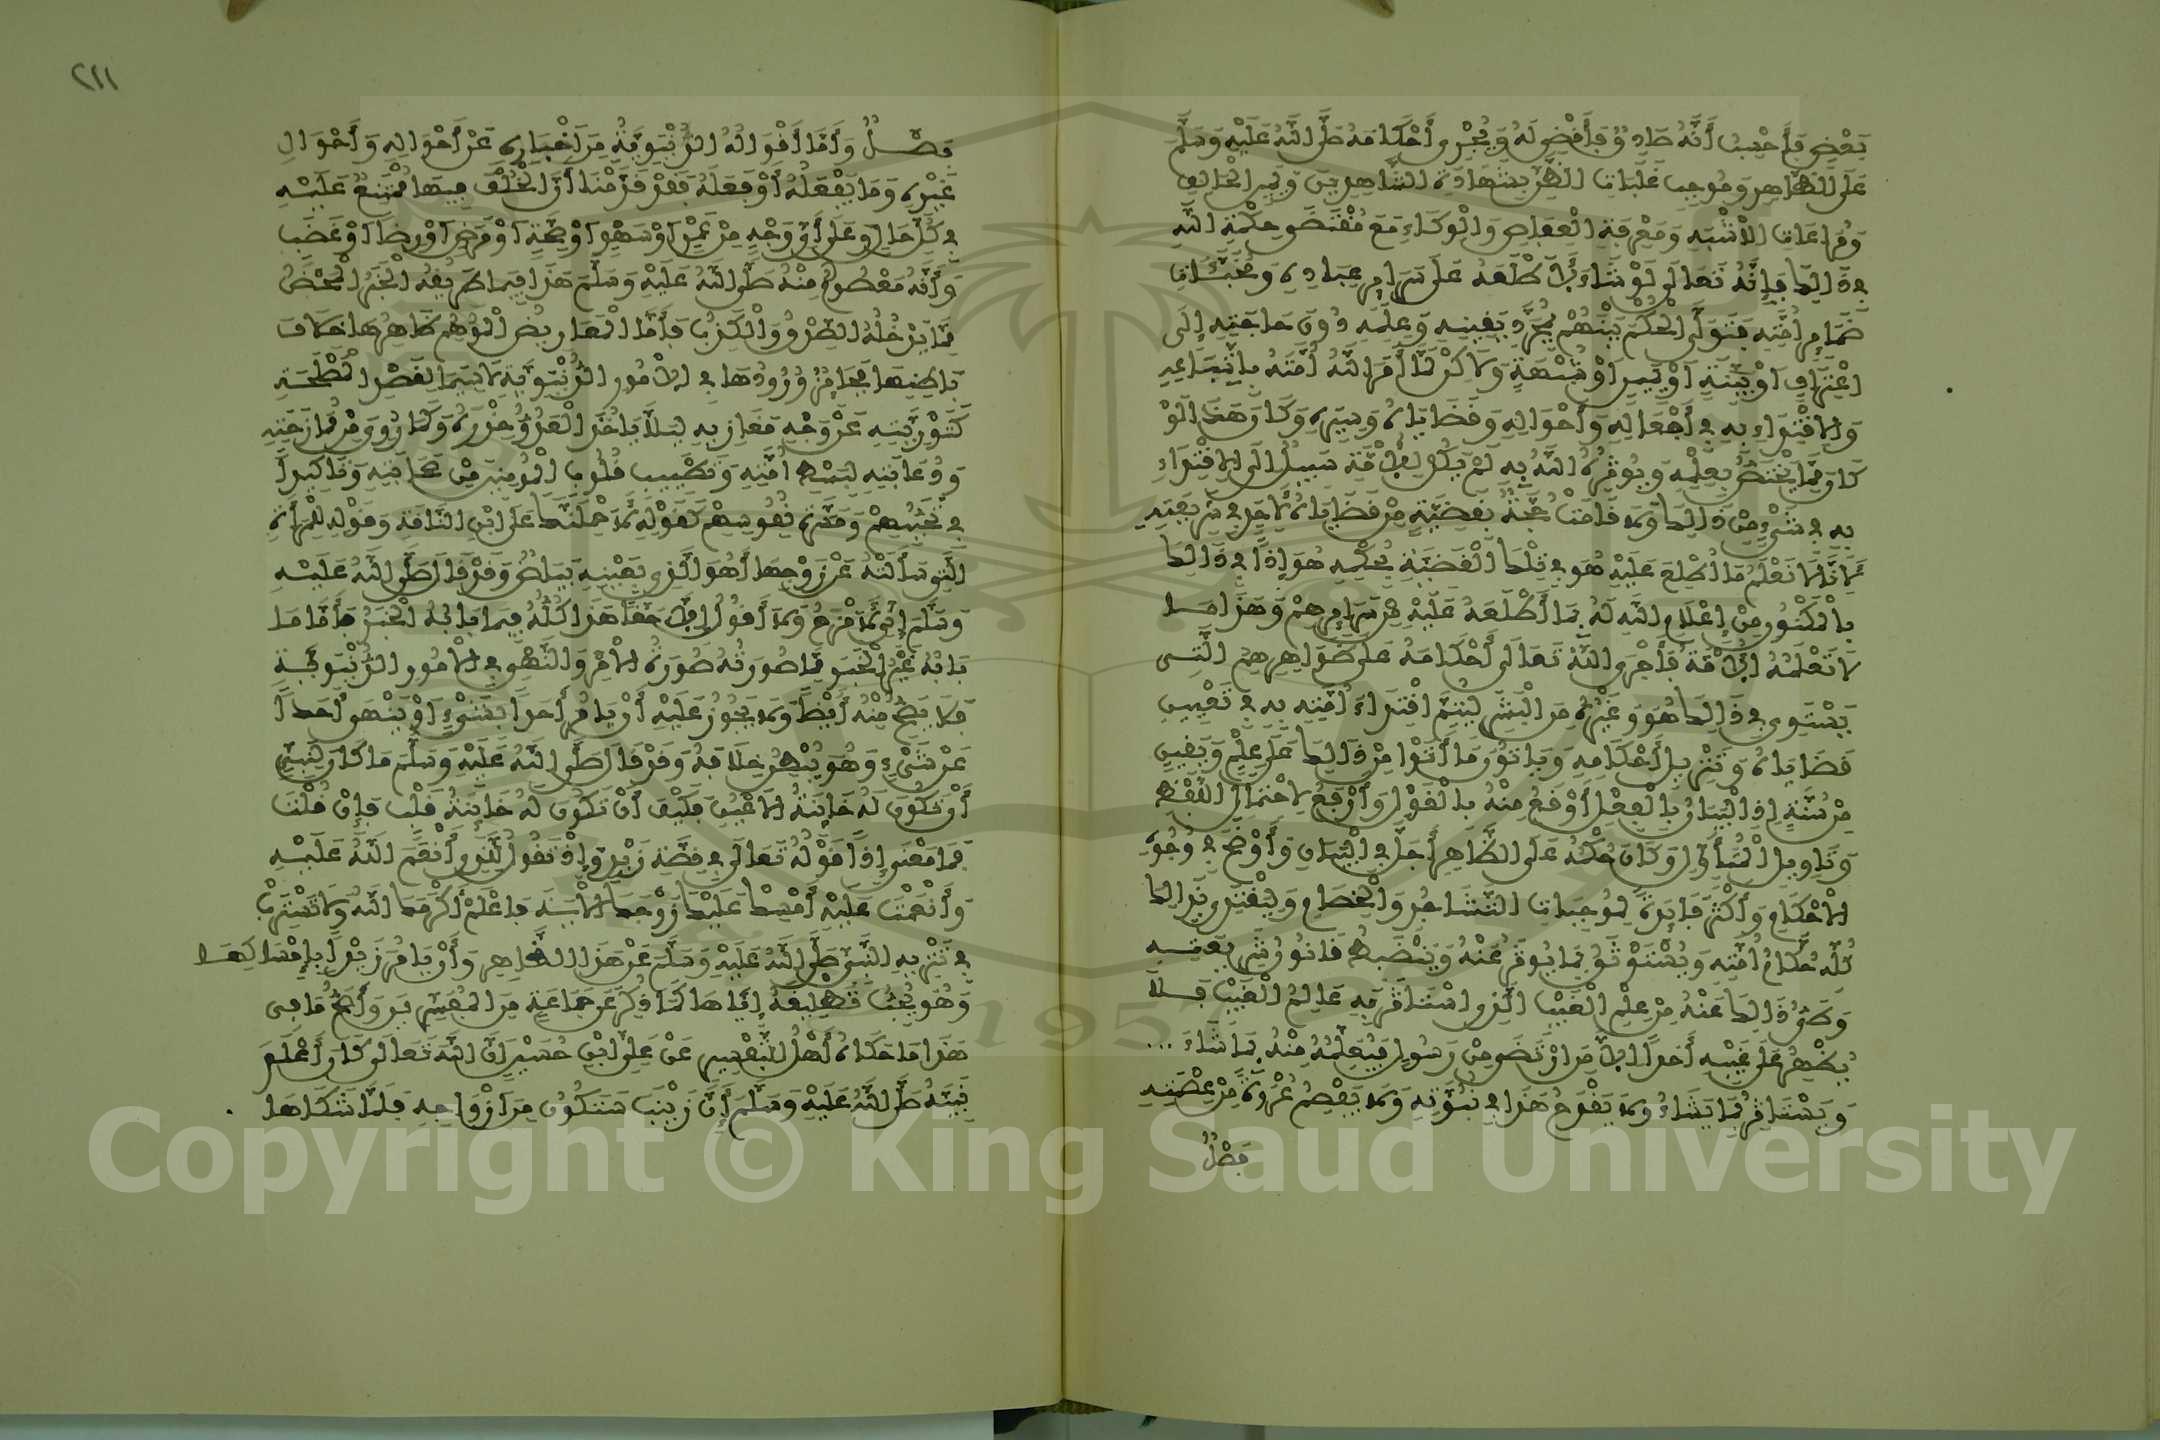 بَعْضٍ فَأَحْسِبُ أَنَّهُ صَادِقٌ فَأَقْضِي لَهُ وَيُجْرِي أَحْكَامَهُ صَلَّى اللَّهُ عَلَيْهِ وَسَلَّمَ
عَلَى الظَّاهِرِ وَمُوجِبِ غَلَبَاتِ الظَّنِّ بِشَهَادَةِ الشَّاهِدَيْنِ وَيَمِينِ الْحَالِفِ
وَمُرَاعَاتِ الْأَشْبَهِ وَمَعْرِفَةِ الْعِفَاصِ وَالْوِكَاءِ مَعَ مُقْتَضَى حِكْمَةِ اللَّهِ
فِي ذَالِكَ فَإِنَّهُ تَعَالَى لَوْ شَاءَ لَأَطْلَعَهُ عَلَى سَرَائِرِ عِبَادِهِ وَمُخَبَّئَاتِ
ضَمَائِرِ أُمَّتِهِ فَتَوَلَّى الْحُكْمَ بَيْنَهُمْ بِمُجَرَّدِ يَقِينِهِ وَعِلْمِهِ دُونَ حَاجَتِهِ إِلَى
اعْتِرَافٍ أَوْ بَيِّنَةٍ أَوْ يَمِينٍ أَوْ شُبْهَةٍ وَلَاكِنْ لَمَّا أَمَرَ اللَّهُ أُمَّتَهُ بِاتِّبَاعِهِ
وَالِاقْتِدَاءِ بِهِ فِي أَفْعَالِهِ وَأَحْوَالِهِ وَقَضَايَاهُ وَسِيَرِهِ وَكَانَ هَذَا لَوْ
كَانَ مِمَّا يَخْتَصُّ بِعِلْمِهِ وَيُوثِرُهُ اللَّهُ بِهِ لَمْ يَكُنْ لِلْأُمَّةِ سَبِيلٌ إِلَى الِاقْتِدَاءِ
بِهِ فِي شَيْءٍ مِنْ ذَالِكَ وَلَا قَامَتْ حُجَّةٌ بِقَضِيَّةٍ مِنْ قَضَايَاهُ لِأَحَدٍ فِي شَرِيعَتِهِ
لِأَنَّا لَا نَعْلَمُ مَا اطُّلِعَ عَلَيْهِ هُوَ فِي تِلْكَ الْقَضِيَّةِ بِحُكْمِهِ هُوَ إِذًا فِي ذَالِكَ
بِالْمَكْنُونِ مِنْ إِعْلَامِ اللَّهِ لَهُ بِمَا أَطْلَعَهُ عَلَيْهِ مِنْ سَرَائِرِهِمْ وَهَذَا مَا
لَا تَعْلَمُهُ الْأُمَّةُ فَأَجْرَى اللَّهُ تَعَالَى أَحْكَامَهُ عَلَى ظَوَاهِرِهِمُ الَّتِي
يَسْتَوِي فِي ذَالِكَ هُوَ وَغَيْرُهُ مِنَ الْبَشَرِ لِيُتِمَّ اقْتِدَاءَ أُمَّتِهِ بِهِ فِي تَعْيِينِ
قَضَايَاهُ وَتَنْزِيلِ أَحْكَامِهِ وَيَاتُونَ مَا أَتَوْا مِنْ ذَالِكَ عَلَى عِلْمٍ وَيَقِينٍ
مِنْ سُنَّتِهِ إِذِ الْبَيَانُ بِالْفِعْلِ أَوْقَعُ مِنْهُ بِالْقَوْلِ وَأَرْفَعُ لِاحْتِمَالِ اللَّفْظِ
وَتَاوِيلِ الْمُتَأَوِّلِ وَكَانَ حُكْمُهُ عَلَى الظَّاهِرِ أَجْلَى فِي الْبَيَانِ وَأَوْضَحَ فِي وُجُوهِ
الْأَحْكَامِ وَأَكْثَرَ فَائِدَةً لِمُوجِبَاتِ التَّشَاجُرِ وَالْخِصَامِ وَلِيَقْتَدِيَ بِذَالِكَ
كُلِّهِ حُكَّامُ أُمَّتِهِ وَيُسْتَوْثَقَ بِمَا يُوثَرُ عَنْهُ وَيَنْضَبِطُ قَانُونُ شَرِيعَتِهِ
وَطَيُّ ذَالِكَ عَنْهُ مِنْ عِلْمِ الْغَيْبِ الَّذِي اسْتَاثَرَ بِهِ عَالِمُ الْغَيْبِ فَلَا
يُظْهِرُ عَلَى غَيْبِهِ أَحَدًا إِلَّا مَنِ ارْتَضَى مِنْ رَسُولٍ فَيُعْلِمُهُ مِنْهُ بِمَا شَاءَ ...
وَيَسْتَاثِرُ بِمَا يَشَاءُ وَلَا يَقْدَحُ هَذَا فِي نُبُوَّتِهِ وَلَا يَفْصِمُ عُرْوَةً مِنْ عِصْمَتِهِ
فَصْلٌ
٢١١
فَصْلٌ وَأَمَّا أَقْوَالُهُ الدُّنْيَوِيَّةُ مِنْ إِخْبَارِهِ عَنْ أَحْوَالِهِ وَأَحْوَالِ
غَيْرِهِ وَمَا يَفْعَلُهُ أَوْ فَعَلَهُ فَقَدْ قَدَّمْنَا أَنَّ الْخُلْفَ فِيهَا مُمْتَنِعٌ عَلَيْهِ
فِي كُلِّ حَالٍ وَعَلَى أَيِّ وَجْهٍ مِنْ عَمْدٍ أَوْ سَهْوٍ أَوْ صِحَّةٍ أَوْ مَرَضٍ أَوْ رِضًا أَوْ غَضَبٍ
وَأَنَّهُ مَعْصُومٌ مِنْهُ صَلَّى اللَّهُ عَلَيْهِ وَسَلَّمَ هَذَا فِيمَا طَرِيقُهُ الْخَبَرُ الْمَحْضُ
مِمَّا يَدْخُلُهُ الصِّدْقُ وَالْكَذِبُ فَأَمَّا الْمَعَارِيضُ الْمُوهِمُ ظَاهِرُهَا خِلَافَ
بَاطِنِهَا فَجَائِزٌ وُرُودُهَا فِي الْأُمُورِ الدُّنْيَوِيَّةِ لَاسِيَمَا لِقَصْدِ الْمَصْلَحَةِ
كَتَوْرِيَتِهِ عَنْ وَجْهِ مَغَازِيهِ لِيَلَّا يَاخُذَ الْعَدُوُّ حِذْرَهُ وَكَمَا رُوِيَ مِنْ مُمَازَحَتِهِ
وَدُعَابَتِهِ لِبَسْطِ أُمَّتِهِ وَتَطْيِيبِ قُلُوبِ الْمُومِنِينَ مِنْ صَحَابَتِهِ وَتَاكِيدًا
فِي تَحَبُّبِهِمْ وَمَسَرَّةِ نُفُوسِهِمْ كَقَوْلِهِ لَأَحْمِلَنَّكَ عَلَى ابْنِ النَّاقَةِ وَقَوْلِهِ لِلْمَرْأَةِ
الَّتِي سَأَلَتْهُ عَنْ زَوْجِهَا أَهُوَ الَّذِي بِعَيْنِهِ بَيَاضٌ وَقَدْ قَالَ صَلَّى اللَّهُ عَلَيْهِ
وَسَلَّمَ إِنِّي لَأَمْزَحُ وَلَا أَقُولُ إِلَّا حَقًّا هَذَا كُلُّهُ فِيمَا بَابُهُ الْخَبَرُ فَأَمَّا مَا
بَابُهُ غَيْرُ الْخَبَرِ مِمَّا صُورَتُهُ صُورَةُ الْأَمْرِ وَالنَّهْيِ فِي الْأُمُورِ الدُّنْيَوِيَّةِ
فَلَا يَصِحُّ مِنْهُ أَيْضًا وَلَا يَجُوزُ عَلَيْهِ أَنْ يَامُرَ أَحَدًا بِشَيْءٍ أَوْ يَنْهَى أَحَدًا
عَنْ شَيْءٍ وَهُوَ يُبْطِنُ خِلَافَهُ وَقَدْ قَالَ صَلَّى اللَّهُ عَلَيْهِ وَسَلَّمَ مَا كَانَ لِنَبِيٍّ
أَنْ تَكُونَ لَهُ خَائِنَةُ الْأَعْيُنِ فَكَيْفَ أَنْ تَكُونَ لَهُ خَائِنَةُ قَلْبٍ فَإِنْ قُلْتَ
فَمَا مَعْنَى إِذًا قَوْلُهُ تَعَالَى فِي قِصَّةِ زَيْدٍ وَإِذْ تَقُولُ لِلَّذِي أَنْعَمَ اللَّهُ عَلَيْهِ
وَأَنْعَمْتَ عَلَيْهِ أَمْسِكْ عَلَيْكَ زَوْجَكَ الْآيَةَ فَاعْلَمْ أَكْرَمَكَ اللَّهُ وَلَا تَسْتَرِبْ
فِي تَنْزِيهِ النَّبِيِّ صَلَّى اللَّهُ عَلَيْهِ وَسَلَّمَ عَنْ هَذَا الظَّاهِرِ وَأَنْ يَامُرَ زَيْدًا بِإِمْسَاكِهَا
وَهُوَ يُحِبُّ تَطْلِيقَهُ إِيَّاهَا كَمَا ذُكِرَ عَنْ جَمَاعَةٍ مِنَ الْمُفَسِّرِينَ وَأَصَحُّ مَا فِي
هَذَا مَا حَكَاهُ أَهْلُ التَّفْسِيرِ عَنْ عَلِيِّ ابْنِ حُسَيْنٍ أَنَّ اللَّهَ تَعَالَى كَانَ أَعْلَمَ
نَبِيَّهُ صَلَّى اللَّهُ عَلَيْهِ وَسَلَّمَ أَنَّ زَيْنَبَ سَتَكُونُ مِنْ أَزْوَاجِهِ فَلَمَّا شَكَاهَا
1957
Copyright © King Saud University